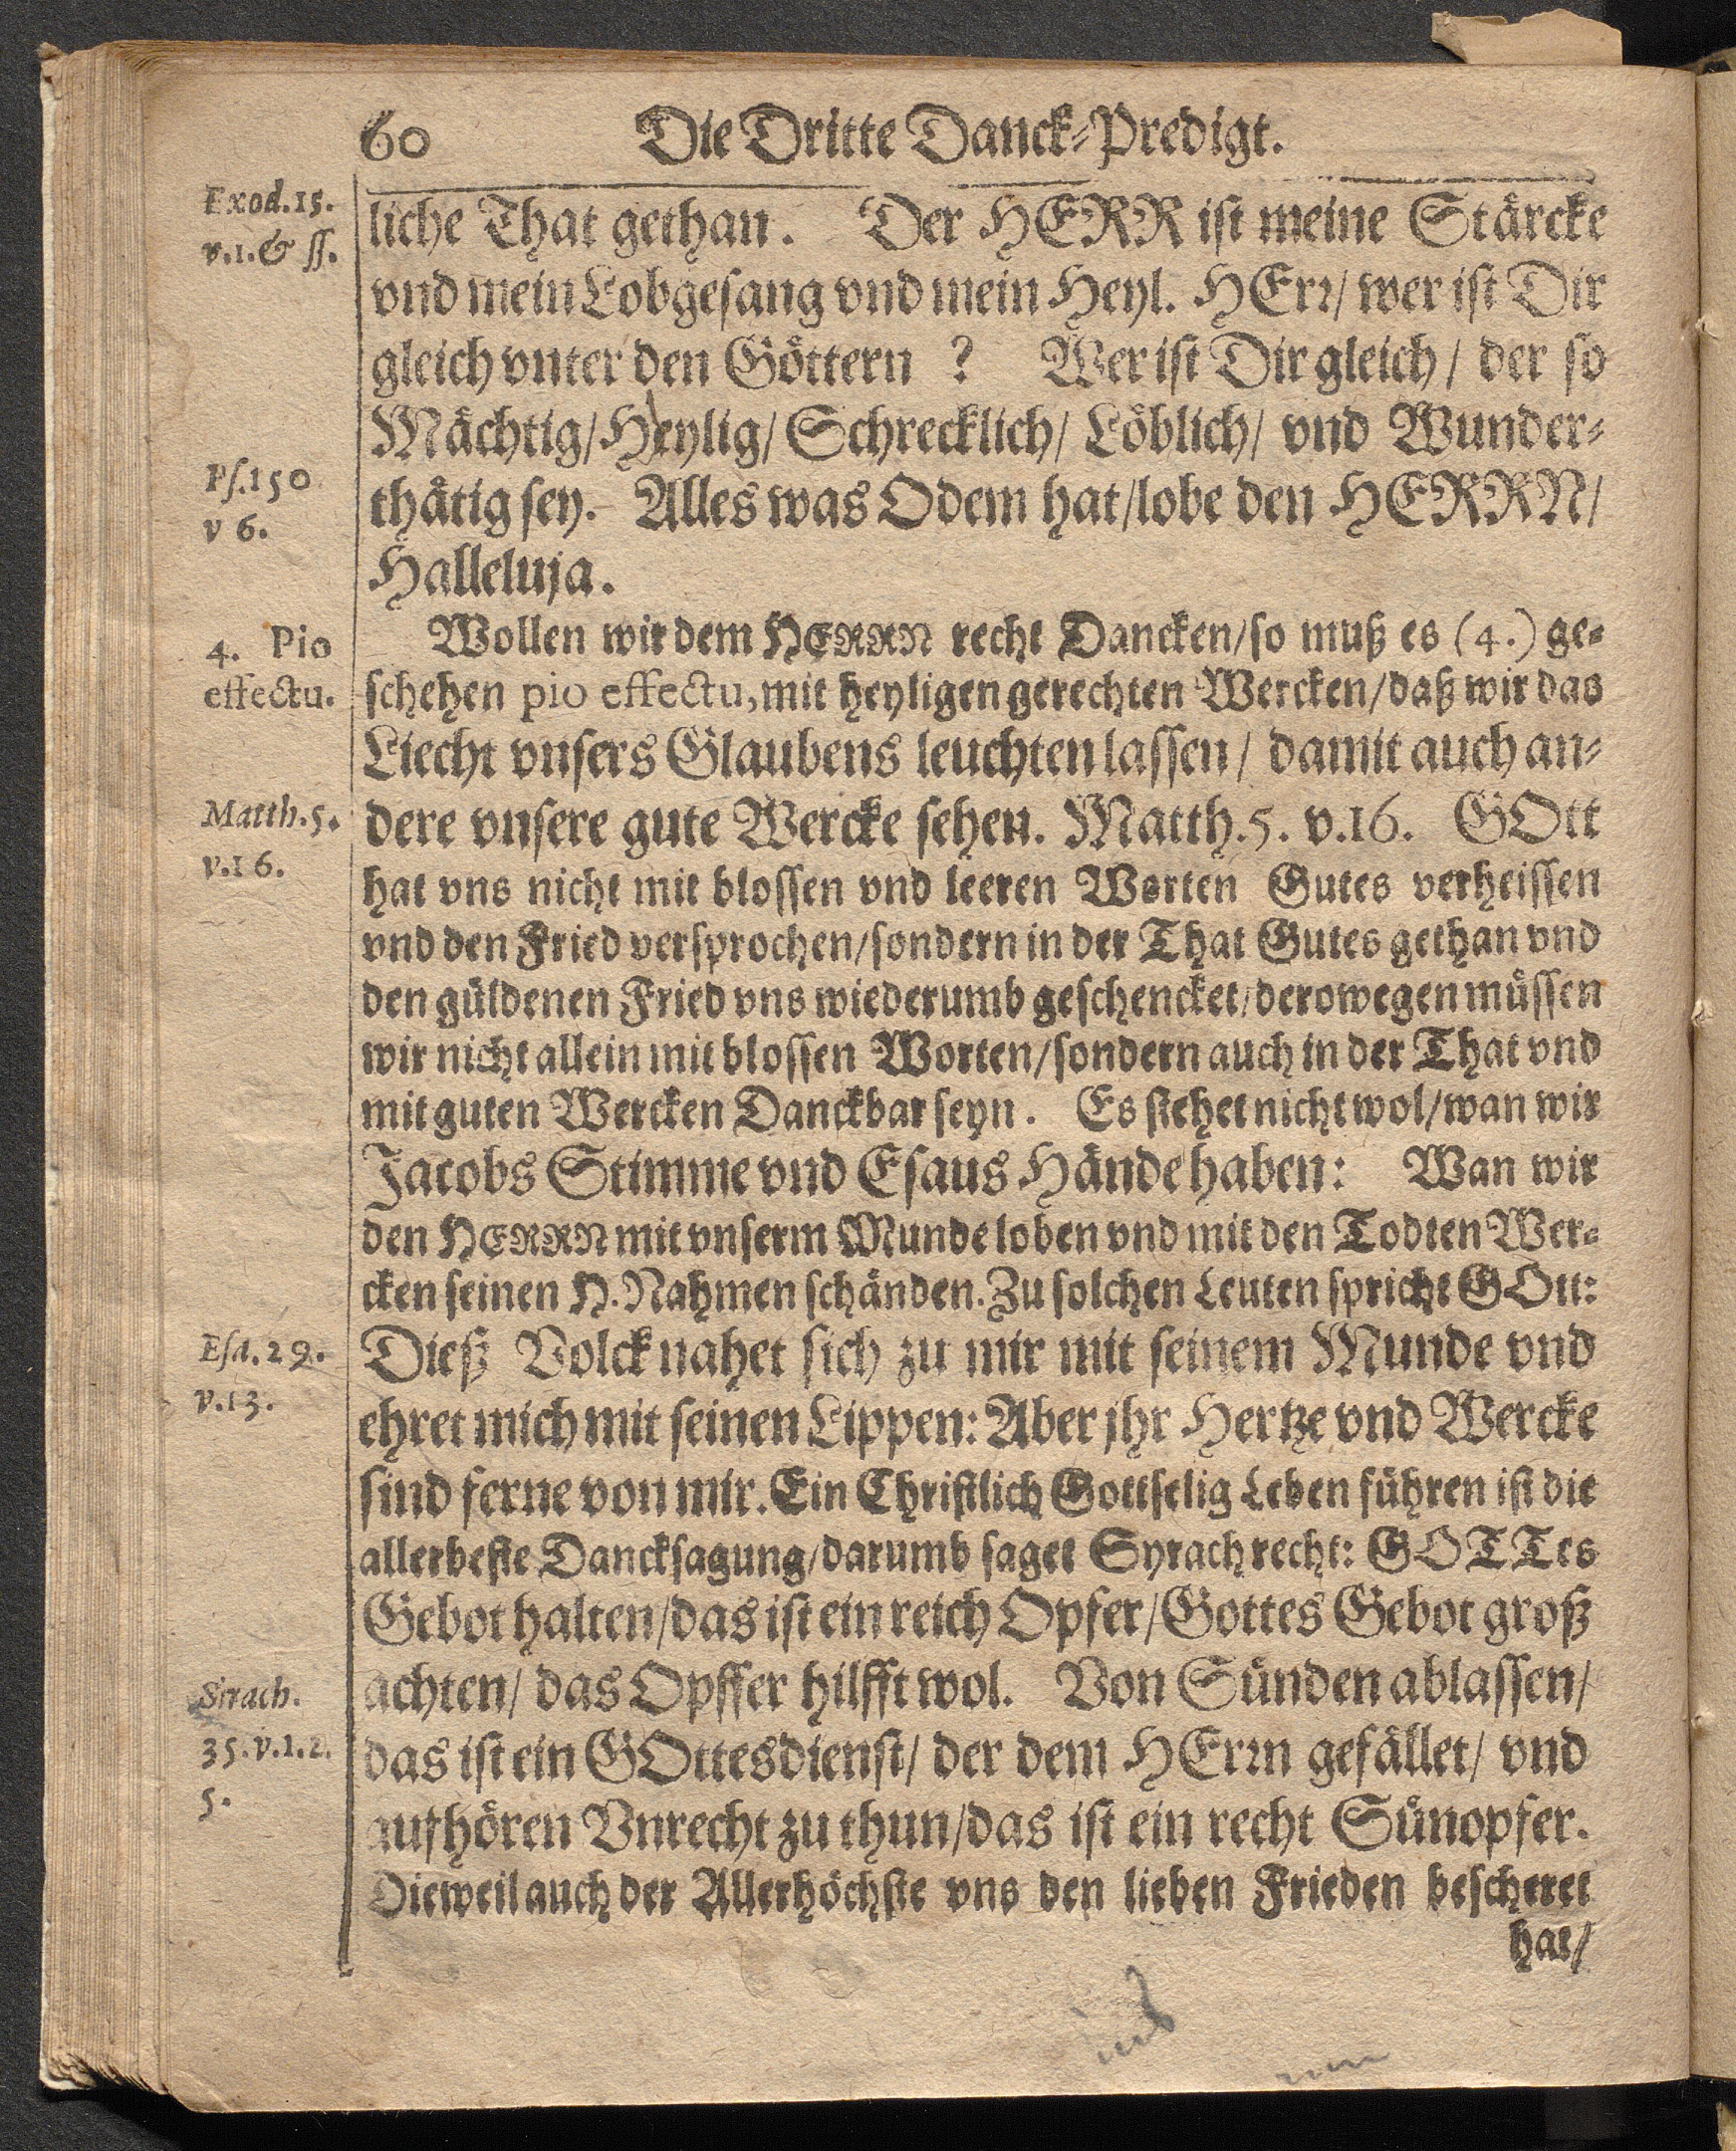 60 Die Dritte Danck-Predigt.
Exod. 15.
v. 1. & ss.
liche That gethan. Der HERR ist meine Stärcke
vnd mein Lobgesang vnd mein Heyl. HErr/ wer ist Dir
gleich vnter den Göttern ? Wer ist Dir gleich / der so
Mächtig/ Heylig/ Schrecklich/ Löblich/ vnd Wunder-
Ps. 150
v 6.
thätig sey. Alles was Odem hat/ lobe den HERRN/
Halleluja.
4. Pio
effectu.
Wollen wir dem HERRN recht Dancken/ so muß es (4.) ge-
schehen pio effectu, mit heyligen gerechten Wercken/ daß wir das
Liecht vnsers Glaubens leuchten lassen / damit auch an-
Matth. 5.
v. 16.
dere vnsere gute Wercke sehen. Matth. 5. v. 16. GOtt
hat vns nicht mit blossen vnd leeren Worten Gutes verheissen
vnd den Fried versprochen/ sondern in der That Gutes gethan vnd
den güldenen Fried vns wiederumb geschencket/ derowegen müssen
wir nicht allein mit blossen Worten/ sondern auch in der That vnd
mit guten Wercken Danckbar seyn. Es stehet nicht wol/ wan wir
Jacobs Stimme vnd Esaus Hände haben: Wan wir
den HERRN mit vnserm Munde loben vnd mit den Todten Wer-
cken seinen H. Nahmen schänden. Zu solchen Leuten spricht GOtt:
Esa. 29.
v. 13.
Dieß Volck nahet sich zu mir mit seinem Munde vnd
ehret mich mit seinen Lippen: Aber jhr Hertze vnd Wercke
sind ferne von mir. Ein Christlich Gottselig Leben führen ist die
allerbeste Dancksagung/ darumb saget Syrach recht: GOTTes
Gebot halten/ das ist ein reich Opfer/ Gottes Gebot groß
Sirach.
35. v. 1. 2.
5.
achten/ das Opffer hilfft wol. Von Sünden ablassen/
das ist ein GOttesdienst/ der dem HErrn gefället/ vnd
aufhören Vnrecht zu thun/ das ist ein recht Sünopfer.
Dieweil auch der Allerhöchste vns den lieben Frieden bescheret
hat/